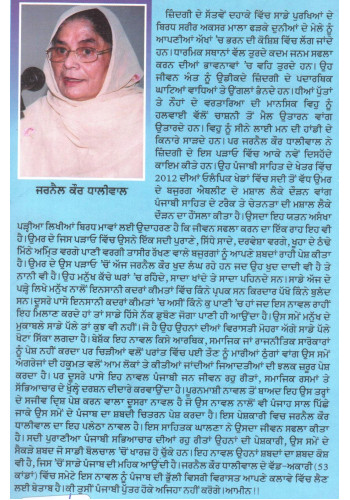 ਜ਼ਿੰਦਗੀ ਦੇ ਸੱਤਵੇਂ ਦਹਾਕੇ ਵਿੱਚ ਸਾਡੇ ਪੁਰਖਿਆਂ ਦੇ
ਬਿਰਧ ਸਰੀਰ ਅਕਸਰ ਮਾਲਾ ਫੜਕੇ ਦੁਨੀਆਂ ਦੇ ਮੇਲੇ ਨੂੰ
ਆਪਣੀਆਂ ਅੱਖਾਂ 'ਚ ਭਰਨ ਦੀ ਕੋਸ਼ਿਸ਼ ਵਿੱਚ ਲੱਗ ਜਾਂਦੇ
ਹਨ। ਧਾਰਮਿਕ ਸਥਾਨਾਂ ਵੱਲ ਤੁਰਦੇ ਕਦਮ ਜਨਮ ਸਫਲਾ
ਕਰਨ ਦੀਆਂ ਭਾਵਨਾਵਾਂ 'ਚ ਵਹਿ ਤੁਰਦੇ ਹਨ। ਉਹ
ਜੀਵਨ ਅੰਤ ਨੂੰ ਉਡੀਕਦੇ ਜ਼ਿੰਦਗੀ ਦੇ ਪਦਾਰਥਿਕ
ਘਾਟਿਆਂ ਵਾਧਿਆਂ ਤੇ ਉਂਗਲਾਂ ਭੰਨਦੇ ਹਨ। ਧੀਆਂ ਪੁੱਤਾਂ
ਤੇ ਨੂੰਹਾਂ ਦੇ ਵਰਤਾਰਿਆ ਦੀ ਮਾਨਸਿਕ ਵਿਹੁ ਨੂੰ
ਹਲਵਾਈ ਵੱਲੋਂ ਚਾਸ਼ਨੀ ਤੋਂ ਮੈਲ ਉਤਾਰਨ ਵਾਂਗ
ਉਤਾਰਦੇ ਹਨ। ਵਿਹੁ ਨੂੰ ਸੀਨੇ ਲਾਈ ਮਨ ਦੀ ਹਾਂਡੀ ਦੇ
ਕਿਨਾਰੇ ਸਾੜਦੇ ਹਨ। ਪਰ ਜਰਨੈਲ ਕੌਰ ਧਾਲੀਵਾਲ ਨੇ
ਜ਼ਿੰਦਗੀ ਦੇ ਇਸ ਪੜਾਓ ਵਿੱਚ ਆਕੇ ਨਵੇਂ ਦਿਸਹੱਦੇ
ਕਾਇਮ ਕੀਤੇ ਹਨ। ਉਹ ਪੰਜਾਬੀ ਸਾਹਿਤ ਦੇ ਖੇਤਰ ਵਿੱਚ
2012 ਦੀਆਂ ਓਲੰਪਿਕ ਖੇਡਾਂ ਵਿੱਚ ਸਦੀ ਤੋਂ ਵੱਧ ਉਮਰ
ਦੇ ਬਜੁਰਗ ਐਥਲੀਟ ਦੇ ਮਸ਼ਾਲ ਲੈਕੇ ਦੌੜਨ ਵਾਂਗ
ਪੰਜਾਬੀ ਸਾਹਿਤ ਦੇ ਟਰੈਕ ਤੇ ਚੇਤਨਤਾ ਦੀ ਮਸ਼ਾਲ ਲੈਕੇ
ਦੌੜਨ ਦਾ ਹੌਸਲਾ ਕੀਤਾ ਹੈ। ਉਸਦਾ ਇਹ ਯਤਨ ਅਸੰਖਾ
ਜਰਨੈਲ ਕੌਰ ਧਾਲੀਵਾਲ
ਪੜ੍ਹੀਆ ਲਿਖੀਆਂ ਬਿਰਧ ਮਾਵਾਂ ਲਈ ਉਦਾਹਰਣ ਹੈ ਕਿ ਜੀਵਨ ਸਫਲਾ ਕਰਨ ਦਾ ਇੱਕ ਰਾਹ ਇਹ ਵੀ
ਹੈ। ਉਮਰ ਦੇ ਜਿਸ ਪੜਾਓ ਵਿੱਚ ਉਸਨੇ ਇੱਕ ਸਦੀ ਪੁਰਾਣੇ, ਸਿੱਧੇ ਸਾਦੇ, ਦਰਵੇਸ਼ਾ ਵਰਗੇ, ਖੂਹਾ ਦੇ ਠੰਢੇ
ਮਿੱਠੇ ਅਮ੍ਰਿਤ ਵਰਗੇ ਪਾਣੀ ਵਰਗੀ ਤਾਸੀਰ ਰੱਖਣ ਵਾਲੇ ਬਜੁਰਗਾਂ ਨੂੰ ਆਪਣੇ ਸ਼ਬਦਾਂ ਰਾਹੀਂ ਪੇਸ਼ ਕੀਤਾ
ਹੈ। ਉਮਰ ਦੇ ਉਸ ਪੜਾਓ 'ਚੋਂ ਅੱਜ ਜਰਨੈਲ ਕੌਰ ਖੁਦ ਲੰਘ ਰਹੇ ਹਨ ਜਦ ਉਹ ਖੁਦ ਦਾਦੀ ਵੀ ਹੈ ਤੇ
ਨਾਨੀ ਵੀ ਹੈ। ਉਹ ਮਨੁੱਖ ਕੱਚੇ ਘਰਾਂ 'ਚ ਰਹਿੰਦੇ, ਸਾਦਾ ਖਾਂਦੇ ਤੇ ਸਾਦਾ ਪਹਿਨਦੇ ਸਨ। ਸਾਡੇ ਅੱਜ ਦੇ
ਪੜ੍ਹੇ ਲਿਖੇ ਮਨੁੱਖ ਨਾਲੋਂ ਇਨਸਾਨੀ ਕਦਰਾਂ ਕੀਮਤਾਂ ਵਿੱਚ ਕਿੰਨੇ ਪੁਖਤ ਸਨ ਕਿਰਦਾਰ ਪੱਖੋ ਕਿੰਨੇ ਬੁਲੰਦ
ਸਨ। ਦੂਸਰੇ ਪਾਸੇ ਇਨਸਾਨੀ ਕਦਰਾਂ ਕੀਮਤਾਂ 'ਚ ਅਸੀਂ ਕਿੰਨੇ ਕੁ ਪਾਣੀ 'ਚ ਹਾਂ ਜਦ ਇਸ ਨਾਵਲ ਰਾਹੀਂ
ਇਹ ਮਿਲਾਣ ਕਰਦੇ ਹਾਂ ਤਾਂ ਸਾਡੇ ਹਿੱਸੇ ਨੱਕ ਡੁਬੋਣ ਜੋਗਾ ਪਾਣੀ ਹੀ ਆਉਂਦਾ ਹੈ। ਉਸ ਸਮੇਂ ਮਨੁੱਖ ਦੇ
ਮੁਕਾਬਲੇ ਸਾਡੇ ਪੱਲੇ ਤਾਂ ਕੁਝ ਵੀ ਨਹੀਂ। ਜੋ ਹੈ ਉਹ ਉਹਨਾਂ ਦੀਆਂ ਵਿਰਾਸਤੀ ਮੋਹਰਾ ਅੱਗੇ ਸਾਡੇ ਪੱਲੇ
ਖੋਟਾ ਸਿੱਕਾ ਲਗਦਾ ਹੈ। ਬੇਸ਼ੱਕ ਇਹ ਨਾਵਲ ਕਿਸੇ ਆਰਥਿਕ, ਸਮਾਜਿਕ ਜਾਂ ਰਾਜਨੀਤਿਕ ਸਾਰੋਕਾਰਾਂ
ਨੂੰ ਪੇਸ਼ ਨਹੀਂ ਕਰਦਾ ਪਰ ਚਿੜੀਆਂ ਵਲੋਂ ਪਰਾਂਤ ਵਿੱਚ ਪਈ ਤੌਣ ਨੂੰ ਮਾਰੀਆਂ ਠੂੰਗਾਂ ਵਾਂਗ ਉਸ ਸਮੇਂ
ਅੰਗਰੇਜਾਂ ਦੀ ਹਕੂਮਤ ਵਲੋਂ ਆਮ ਲੋਕਾਂ ਤੇ ਕੀਤੀਆਂ ਜਾਂਦੀਆਂ ਜਿਆਦਤੀਆਂ ਦੀ ਝਲਕ ਜ਼ਰੂਰ ਪੇਸ਼
ਕਰਦਾ ਹੈ। ਪਰ ਦੂਸਰੇ ਪਾਸੇ ਇਹ ਨਾਵਲ ਪੰਜਾਬੀ ਜਨ ਜੀਵਨ ਰਹੁ ਰੀਤਾਂ, ਸਮਾਜਿਕ ਰਸਮਾਂ ਤੇ
ਸੱਭਿਆਚਾਰ ਦੇ ਖੁੱਲ੍ਹੇ ਦਰਸ਼ਨ ਦੀਦਾਰੇ ਕਰਵਾਉਂਦਾ ਹੈ। ਪੂਰਨਮਾਸ਼ੀ ਨਾਵਲ ਤੋਂ ਬਾਅਦ ਇਹ ਉਸ ਤਰ੍ਹਾਂ
ਦੇ ਸਜੀਵ ਦ੍ਰਿਸ਼ ਪੇਸ਼ ਕਰਨ ਵਾਲਾ ਦੂਸਰਾ ਨਾਵਲ ਹੈ ਜੋ ਉਸ ਨਾਵਲ ਨਾਲੋਂ ਵੀ ਪੰਜਾਹ ਸਾਲ ਪਿੱਛੇ
ਜਾਕੇ ਉਸ ਸਮੇਂ ਦੇ ਪੰਜਾਬ ਦਾ ਸ਼ਬਦੀ ਚਿਤਰਨ ਪੇਸ਼ ਕਰਦਾ ਹੈ। ਇਸ ਪੇਸ਼ਕਾਰੀ ਵਿਚ ਜਰਨੈਲ ਕੌਰ
ਧਾਲੀਵਾਲ ਦਾ ਇਹ ਪਲੇਠਾ ਨਾਵਲ ਹੈ। ਇਸ ਸਾਹਿਤਕ ਘਾਲਣਾ ਨੇ ਉਸਦਾ ਜੀਵਨ ਸਫਲਾ ਕੀਤਾ
ਹੈ। ਸਦੀ ਪੁਰਾਣੀਆ ਪੰਜਾਬੀ ਸਭਿਆਚਾਰ ਦੀਆਂ ਰਹੁ ਰੀਤਾਂ ਉਹਨਾਂ ਦੀ ਪੇਸ਼ਕਾਰੀ, ਉਸ ਸਮੇਂ ਦੇ
ਸੈਂਕੜੇ ਸ਼ਬਦ ਜੋ ਸਾਡੀ ਬੋਲਚਾਲ 'ਚੋਂ ਖਾਰਜ਼ ਹੋ ਚੁੱਕੇ ਹਨ। ਇਹ ਨਾਵਲ ਉਹਨਾਂ ਸ਼ਬਦਾਂ ਦਾ ਸ਼ਬਦ ਕੋਸ਼
ਵੀ ਹੈ, ਜਿਸ 'ਚੋਂ ਸਾਡੇ ਪੰਜਾਬ ਦੀ ਮਹਿਕ ਆਉਂਦੀ ਹੈ। ਜਰਨੈਲ ਕੌਰ ਧਾਲੀਵਾਲ ਦੇ ਵੱਡ-ਅਕਾਰੀ (53
ਕਾਂਡਾਂ) ਵਿੱਚ ਸਮੇਟੇ ਇਸ ਨਾਵਲ ਨੂੰ ਪੰਜਾਬ ਦੀ ਭੁੱਲੀ ਵਿਸਰੀ ਵਿਰਾਸਤ ਆਪਣੇ ਕਲਾਵੇ ਵਿੱਚ ਲੈਣ
ਲਈ ਬੇਤਾਬ ਹੈ। ਕੀ ਤੁਸੀਂ ਪੰਜਾਬੀ ਪੁੱਤਰ ਹੋਕੇ ਅਜਿਹਾ ਨਹੀਂ ਕਰੋਗੇ। ਆਮੀਨ॥